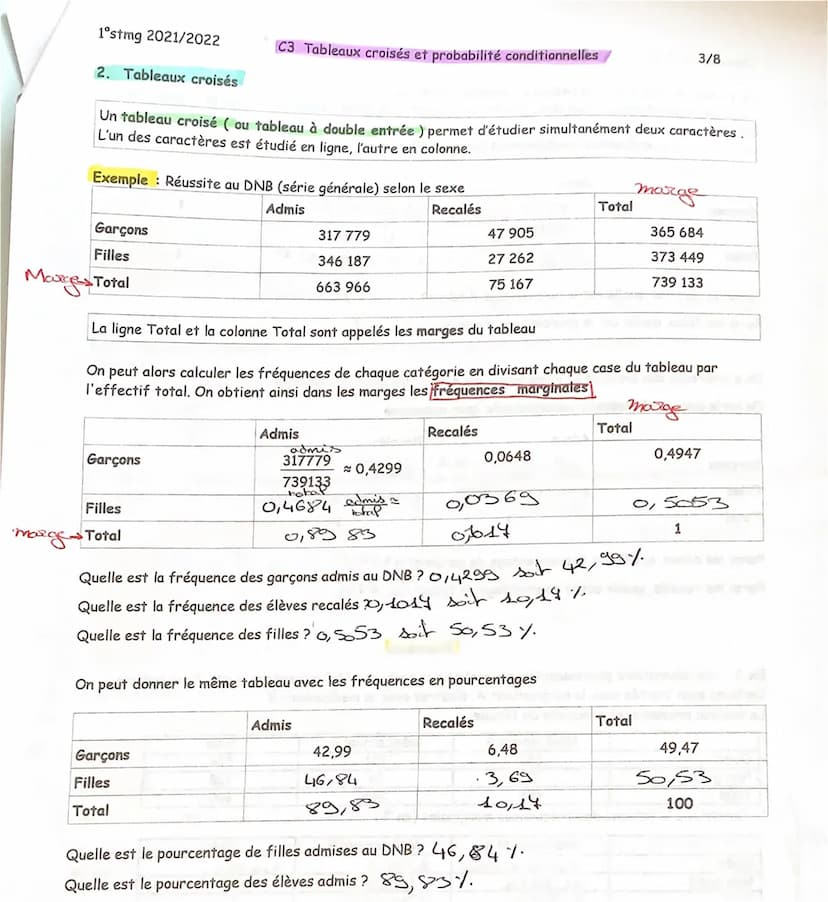 1°stmg 2021/2022
C3 Tableaux croisés et probabilité conditionnelles
3/8
2. Tableaux croisés
Un tableau croisé ( ou tableau à double entrée ) permet d'étudier simultanément deux caractères .
L'un des caractères est étudié en ligne, l'autre en colonne.
Exemple : Réussite au DNB (série générale) selon le sexe
marge
Admis Recalés Total
Garçons 317 779 47 905 365 684
Filles 346 187 27 262 373 449
Marge → Total 663 966 75 167 739 133
La ligne Total et la colonne Total sont appelés les marges du tableau
On peut alors calculer les fréquences de chaque catégorie en divisant chaque case du tableau par
l'effectif total. On obtient ainsi dans les marges les fréquences marginales
marge
Admis Recalés Total
admis
Garçons 317779 ≈ 0,4299 0,0648 0,4947
739133
total
Filles 0,4684 admis = 0,0369 0,5053
total
marge → Total 0,89 83 1
Quelle est la fréquence des garçons admis au DNB ? 0,4299 soit 42,99 %
Quelle est la fréquence des élèves recalés ? 0,1017 soit 10,17 %
Quelle est la fréquence des filles ? 0,5053 soit 50,53 %.
On peut donner le même tableau avec les fréquences en pourcentages
Admis Recalés Total
Garçons 42,99 6,48 49,47
Filles 46,84 3,69 50,53
Total 89,83 10,17 100
Quelle est le pourcentage de filles admises au DNB ? 46,84 %.
Quelle est le pourcentage des élèves admis ? 89,83 %.